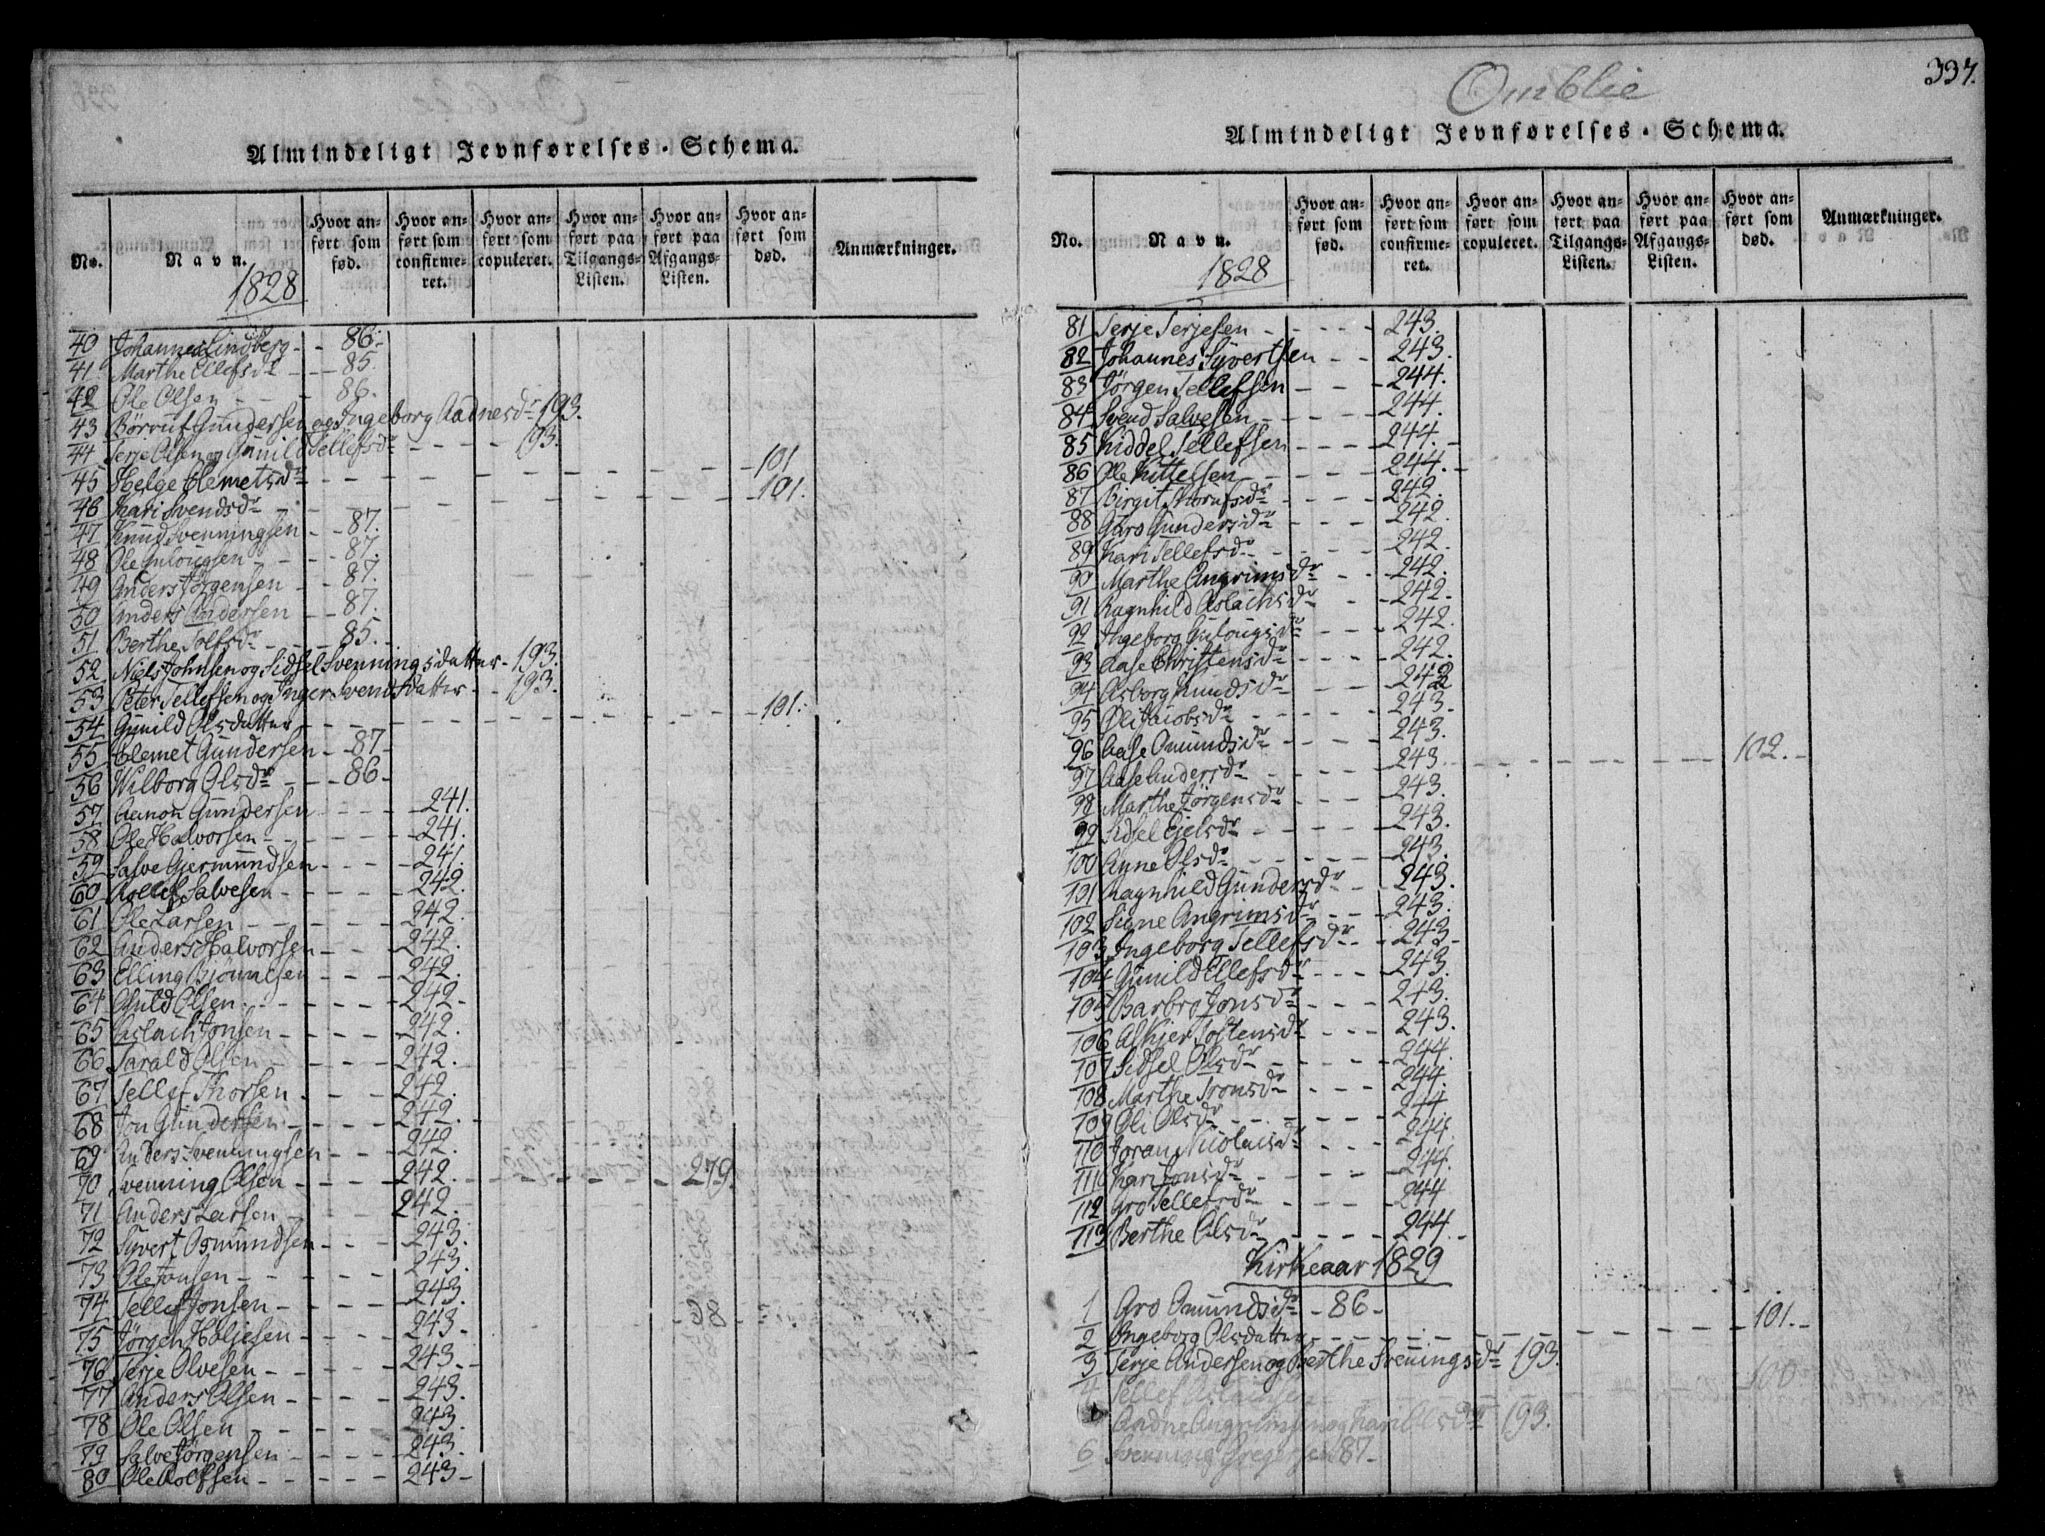 Almindeligt Jevnførelses-Schema.
No. Navn. Hvor anført som fød. Hvor anført som confirmeret. Hvor anført som copuleret. Hvor anført paa Tilgangs-Listen. Hvor anført paa Afgangs-Listen. Hvor anført som død. Anmærkninger.
1828
40 Johannes Lindberg - - 86.
41. Marthe Ellefsdr - - - 85.
42 Ole Olsen - - - 86.
43 Gunderse og Ingeborg Aadnesdr 193.
44 Terje Olsen og Gunild Tellefsdr - - - - 193.
45 Helge Clemetsdr - - - - 101
46 Kari Svendsdr - - - - 101.
47 Knud Svenningsen - - 87.
48 Ole - - 87.
49 Anders Jörgensen - - 87.
50 Anders Andersen - - 87.
51 Berthe - - - 85.
52. Niels Johnsen og Sidsel Svenningsdatter - 193.
53 Peter Tellefsen og Inger Svendsdatter - - 193.
54 Gunild Olsdatter - - - - 101.
55 Clemet Gundersen - - 87-
56 Wilborg Olsdr - - - 86-
57 Aanon Gundersen - - - - 241.
58 Ole Halvorsen - - - - 241.
59 Salve Gjermundsen - - - - 241.
60 Rollef Salvesen - - - - 242.
61 Ole Larsen - - - - 242.
62 Anders Halvorsen - - - 242.
63 Elling - - - 242.
64 Olsen - - - - 242-
65 Aslach Jonsen - - - - 242.
66 Tarald Olsen - - - - 242.
67 Tellef Thorsen - - - 242.
68 Jon Gundersen - - - - 242.
69 Anders Svenningsen - - - 242.
70 Svenning Olsen - - - - 242. - - - - 279.
71 Anders Larsen - - - 242.
72 Syvert Osmundsen - - - 243.
73 Ole Jonsen - - - - 243.
74 Tellef Jonsen - - - - 243.
75 Jörgen Holjesen - - - - 243-
76 Terje Olvesen - - - - 243--
77 Anders Olsen - - - - 243.
78 Ole Olsen - - - - 243.
79 Salve Jörgensen - - - - 243.
80 Ole Rolfsen - - - - 243-
337.
Omblie
Almindeligt Jevnførelses-Schema.
No. Navn. Hvor anført som fød. Hvor anført som confirmeret. Hvor anført som copuleret. Hvor anført paa Tilgangs-Listen. Hvor anført paa Afgangs-Listen. Hvor anført som død. Anmærkninger.
1828
81 Terje Terjesen - - - - - 243.
82 Johannes Syvertsen - - 243.
83 Jörgen Tellefsen - - - 244.
84 Svend Salvesen - - - - 244.
85 Kiddel Tellefsen - - - 244.-
86 Ole Kittelsen - - - - 244.-
87 Birgit - - - - 242.
88 Gundersdr - - - - 242.
89 Kari Tellefsdr - - - - 242.
90 Marthe Angrimsdr - - 242.
91 Ragnhild Aslachsdr - - 242-
92 Ingeborg - - - 242.
93 Aase Christensdr - - - - 242.
94 Asborg Knudsdr - - - 242
95 Oli Jacobsdr - - - - 243-
96 Aase Omundsdr - - - - 243.
97 Aase Andersdr - - - - 243 - - - - 102.-
98 Marthe Jörgensdr - - - - 243.
99 Sidsel - - - - 243.
100 Anne Olsdr - - - - 243.
101 Ragnhild Gundersdr - - 243.
102 Signe Angrimsdr - - - 243.
103 Ingeborg Tellefsdr - - 243-
104 Gunild Ellefsdr - - - - 243.
105 Barbro Jonsdr - - - - 243.
106 Tostensdr - - - 243.
107 Sidsel Olsdr - - - - 244.
108 Marthe - - - 244.
109 Oli Olsdr - - - - 244
110 Joran Nicolaisdr - - - - 244.
111 Kari Jonsdr - - - - 244.
112 Gro Tellefsdr - - - - 244
113 Berthe Olsdr - - - - 244.-
Kirkeaar 1829
1 Gro Omundsdr - 86-
2 Ingeborg Olsdatter - - - - 101.-
3 Terje Andersen og Berthe Svenningsdr 193.
4 Tellef Aslachsen 100
Aadne Angrimsen og Kari Olsdr 193.
6 Svenning Gregersen 87-